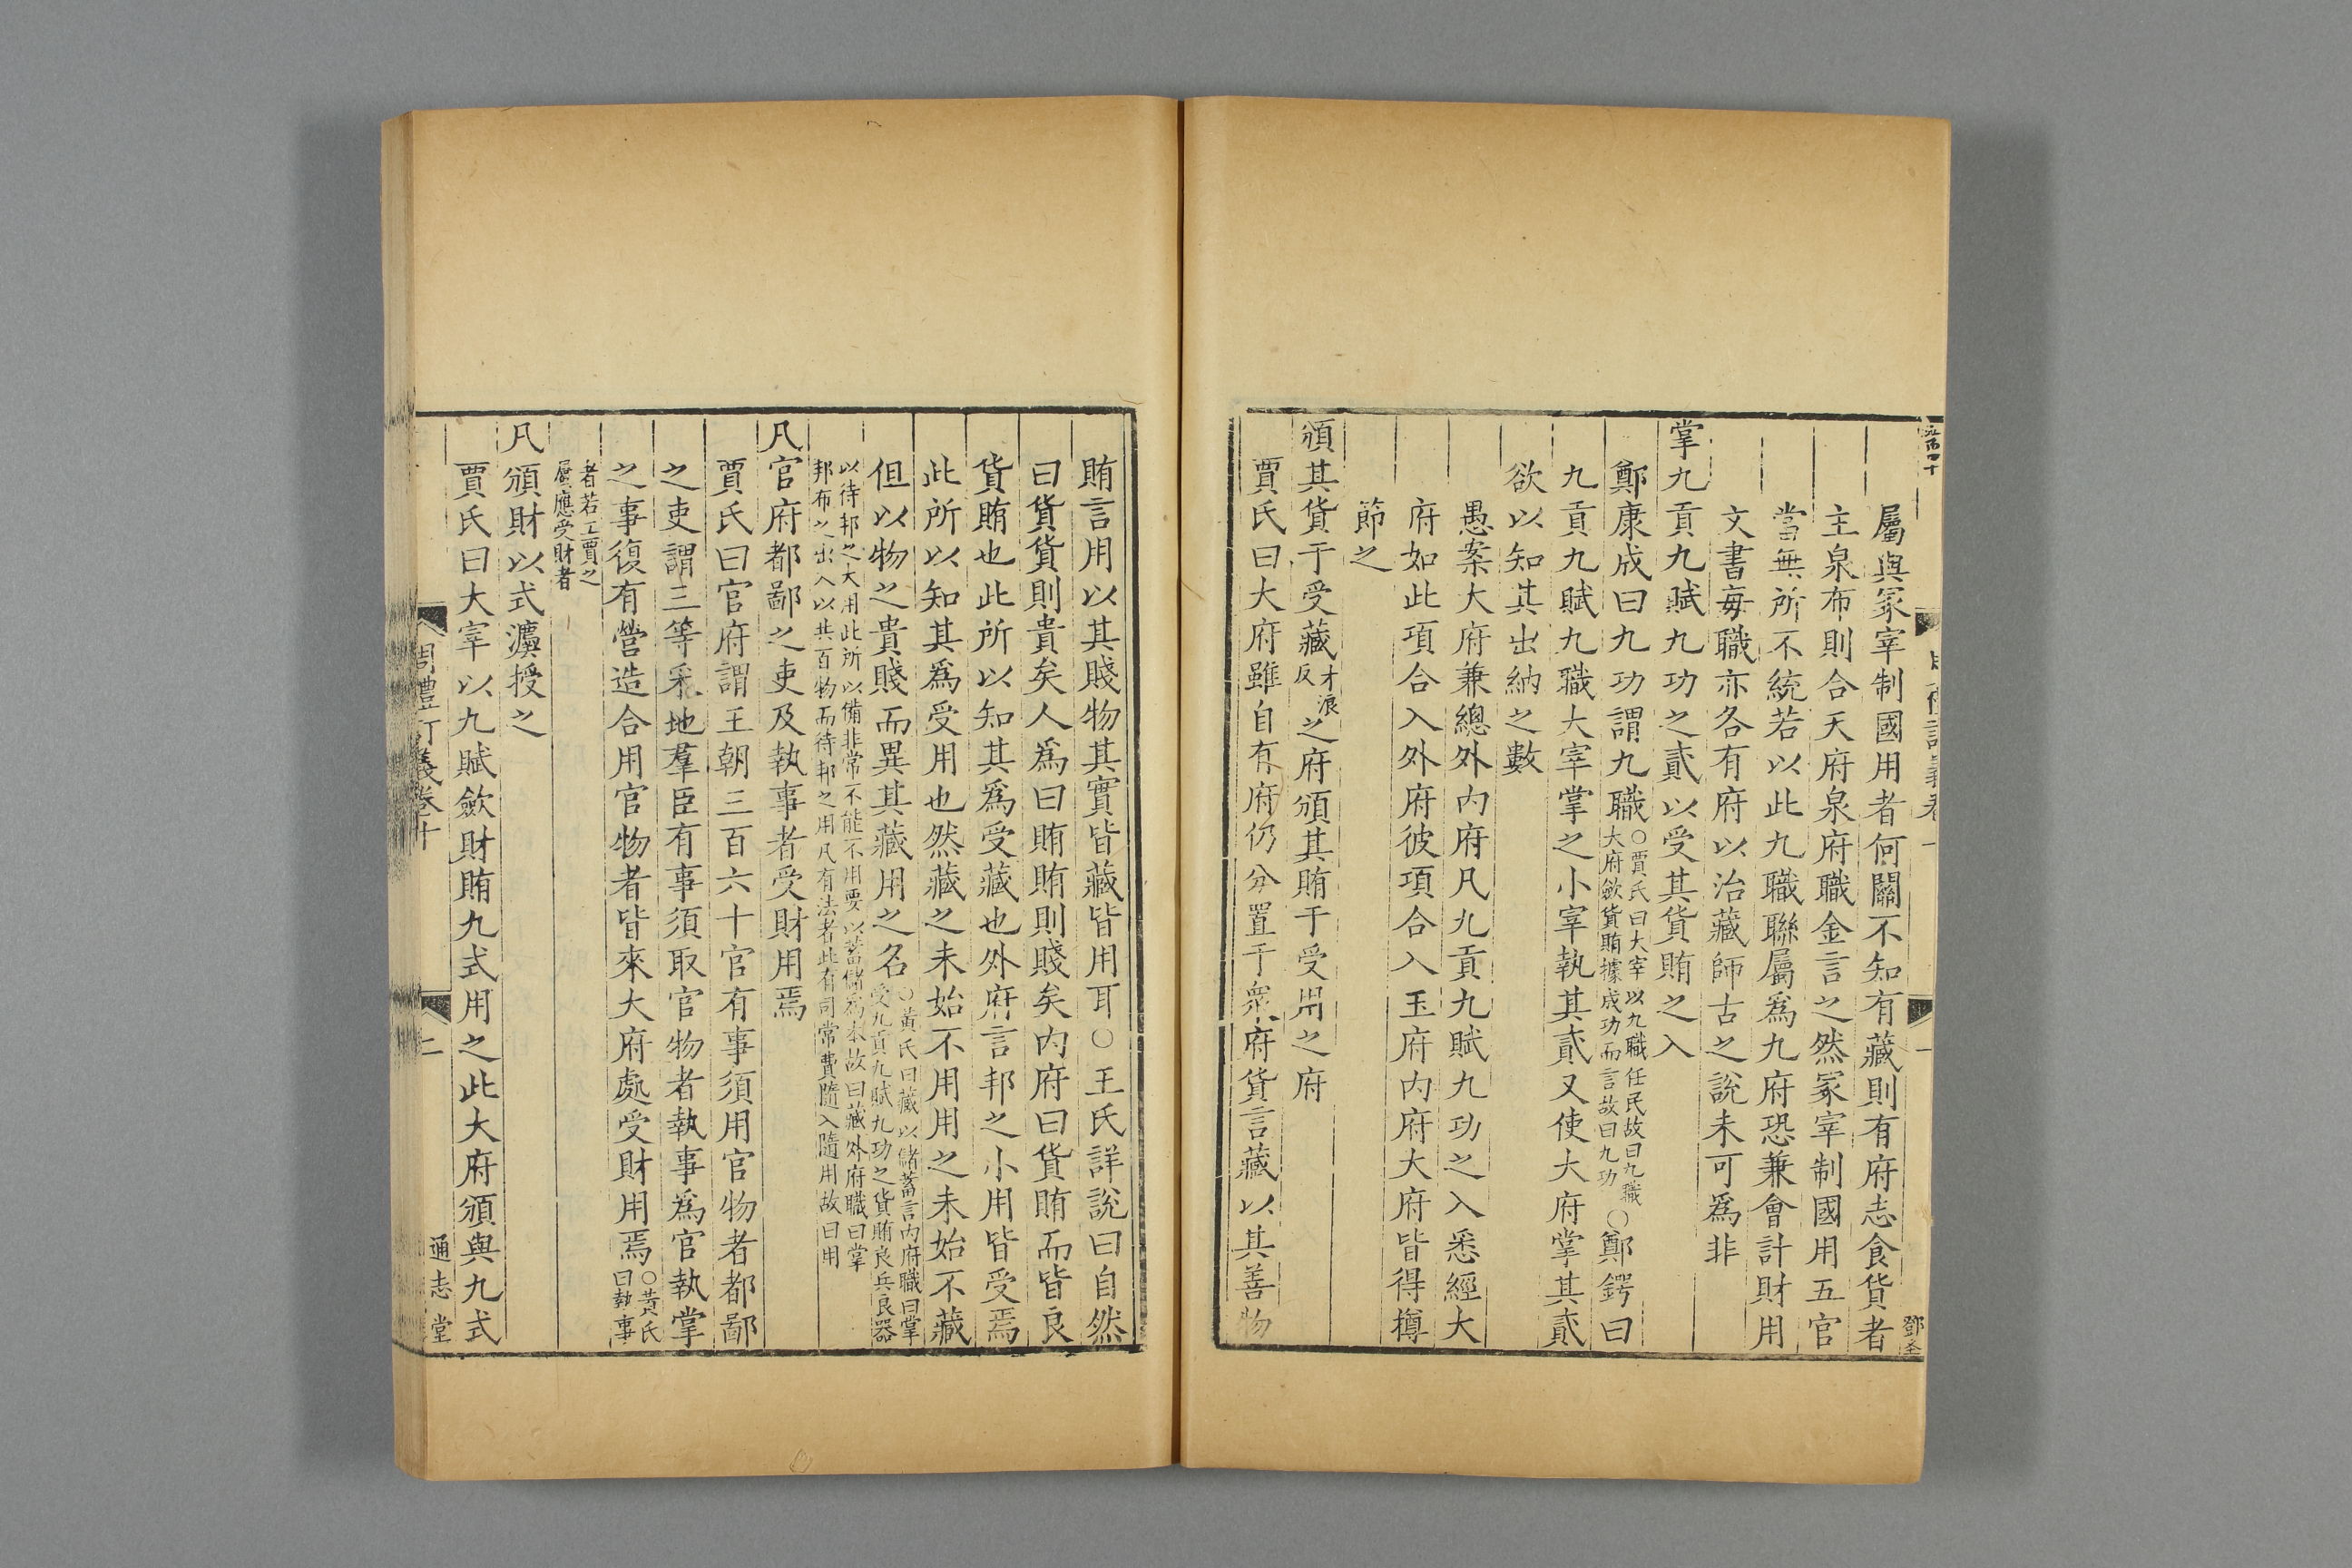 屬與冢宰制國用者何關不知有藏則有府志食貨者
主泉布則合天府泉府職金言之然冢宰制國用五官
當無所不統若以此九職聯屬爲九府恐兼會計財用
文書每職亦各有府以治藏師古之說未可爲非
掌九貢九賦九功之貳以受其貨賄之入
鄭康成曰九功謂九職○賈氏曰大宰以九職任民故曰九職大府斂貨賄據成功而言故曰九功○鄭鍔曰
九貢九賦九職大宰掌之小宰執其貳又使大府掌其貳
欲以知其出納之數
愚案大府兼總外內府凡九貢九賦九功之入悉經大
府如此項合入外府彼項合入玉府內府大府皆得撙
節之
頒其貨于受藏才浪反之府頒其賄于受用之府
賈氏曰大府雖自有府仍分置于衆府貨言藏以其善物
賄言用以其賤物其實皆藏皆用耳○王氏詳說曰自然
曰貨貨則貴矣人爲曰賄賄則賤矣內府曰貨賄而皆良
貨賄也此所以知其爲受藏也外府言邦之小用皆受焉
此所以知其爲受用也然藏之未始不用用之未始不藏
但以物之貴賤而異其藏用之名○黃氏曰藏以儲蓄言內府職曰掌受九貢九賦九功之貨賄良兵良器
以待邦之大用此所以備非常不能不用要以蓄儲爲本故曰藏外府職曰掌邦布之出入以共百物而待邦之用凡有法者此有司常費隨入隨用故曰用
凡官府都鄙之吏及執事者受財用焉
賈氏曰官府謂王朝三百六十官有事須用官物者都鄙
之吏謂三等采地羣臣有事須取官物者執事爲官執掌
之事復有營造合用官物者皆來大府處受財用焉○黃氏曰執事
者若工賈之屬應受財者
凡頒財以式灋授之
賈氏曰大宰以九賦斂財賄九式用之此大府頒與九式
周禮訂義卷十
二
通志堂